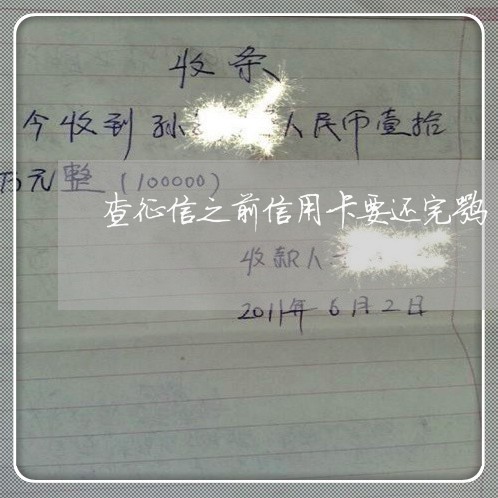 收条
今收到孙 人民币壹拾
万元整(100000)
查征信之前信用卡要还完鹗
收款人
2011年6月2日